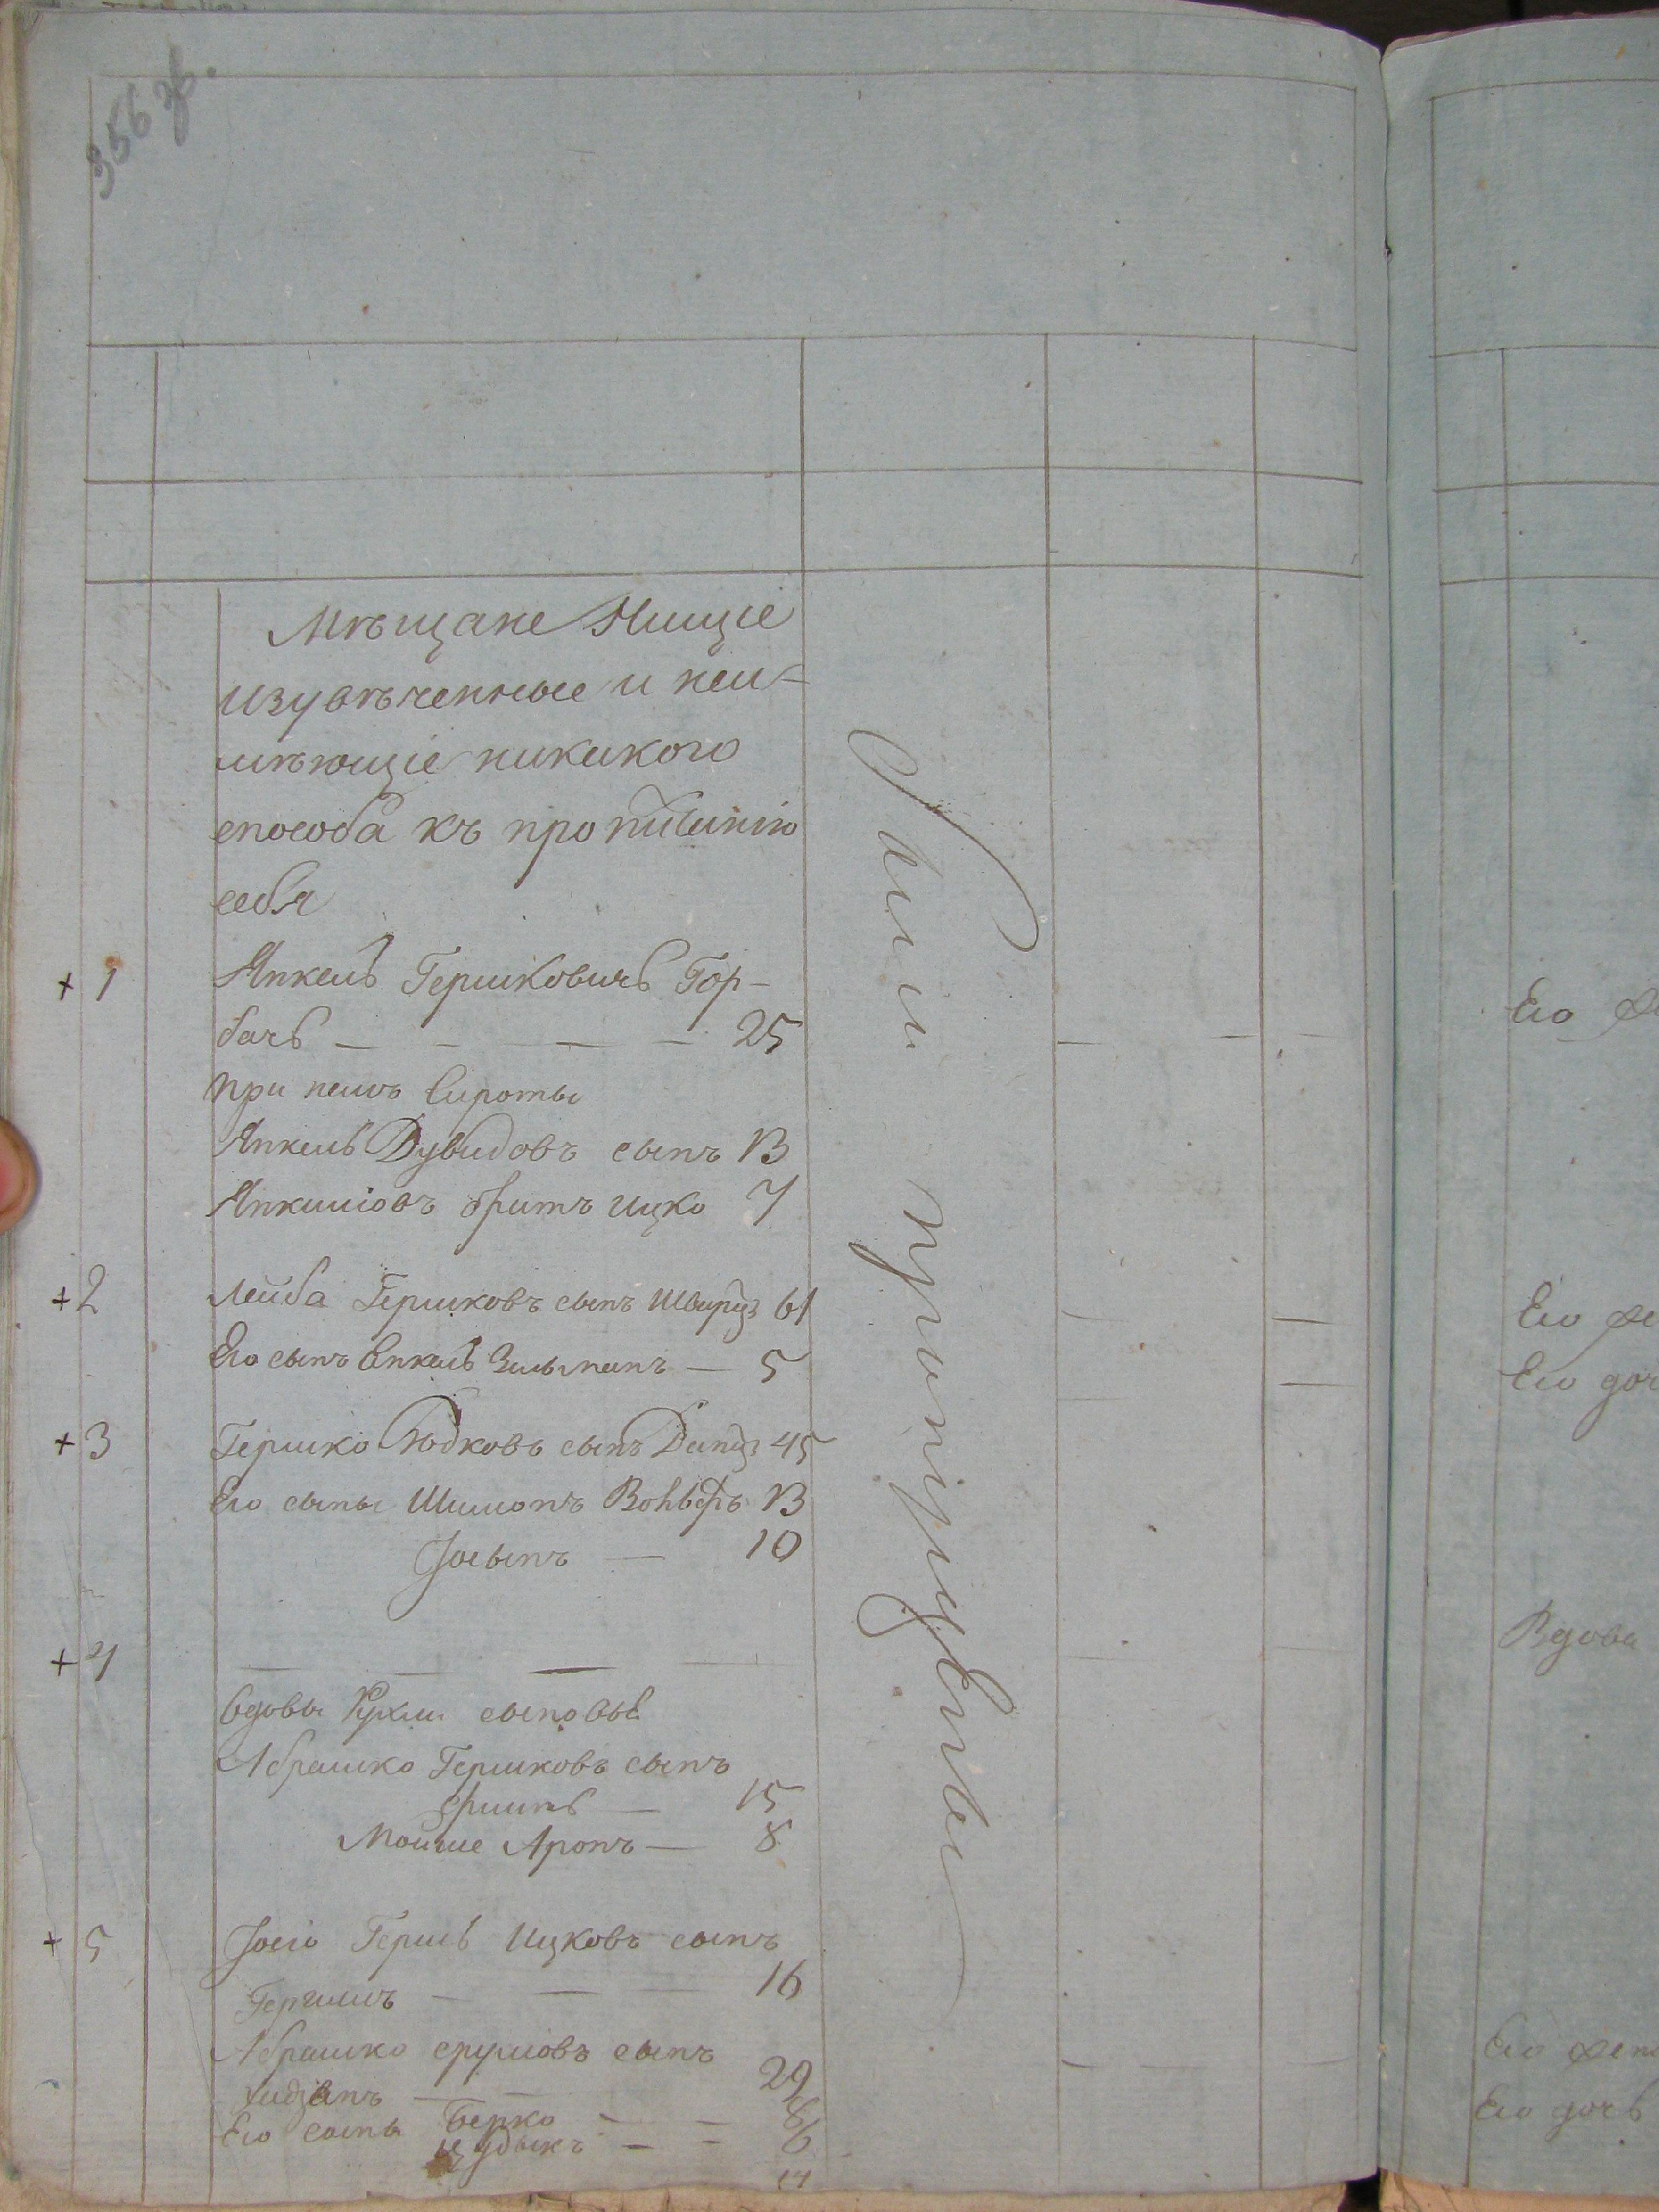 356 зв.
Мѣщане Нищіе
изувѣченные и неи-
мѣющіе никакого
способа къ пропитанію
себя
+ 1 Янкель Гершковичь Гор-
бачь — — — — 25
при немъ Сироты
Янкель Дувидовъ сынъ 13
Янкилiовъ братъ ицко 7
+ 2 Лейба Гершковъ сынъ Шварцъ 61
Его сынъ Енкель Зильманъ — 5
+ 3 Гершко Юдковъ сынъ Данцъ 45
Его сыны Шимонъ Вольфъ 13
Іосыпъ — 10
+ 4 — — — —
вдовы Рухли сыновья
Абрашко Гершковъ сынъ
15
Мойше Аронъ — 8
+ 5 Іосiо Гершъ Ицковъ сынъ
— — — 16
Абрашко сруліовъ сынъ
— — 29
Его сыны Берко — — 8
— — 6
14
Сами пропитуютъ
Его же
Его же
Его доч
Вдова
Его жена
Его дочь